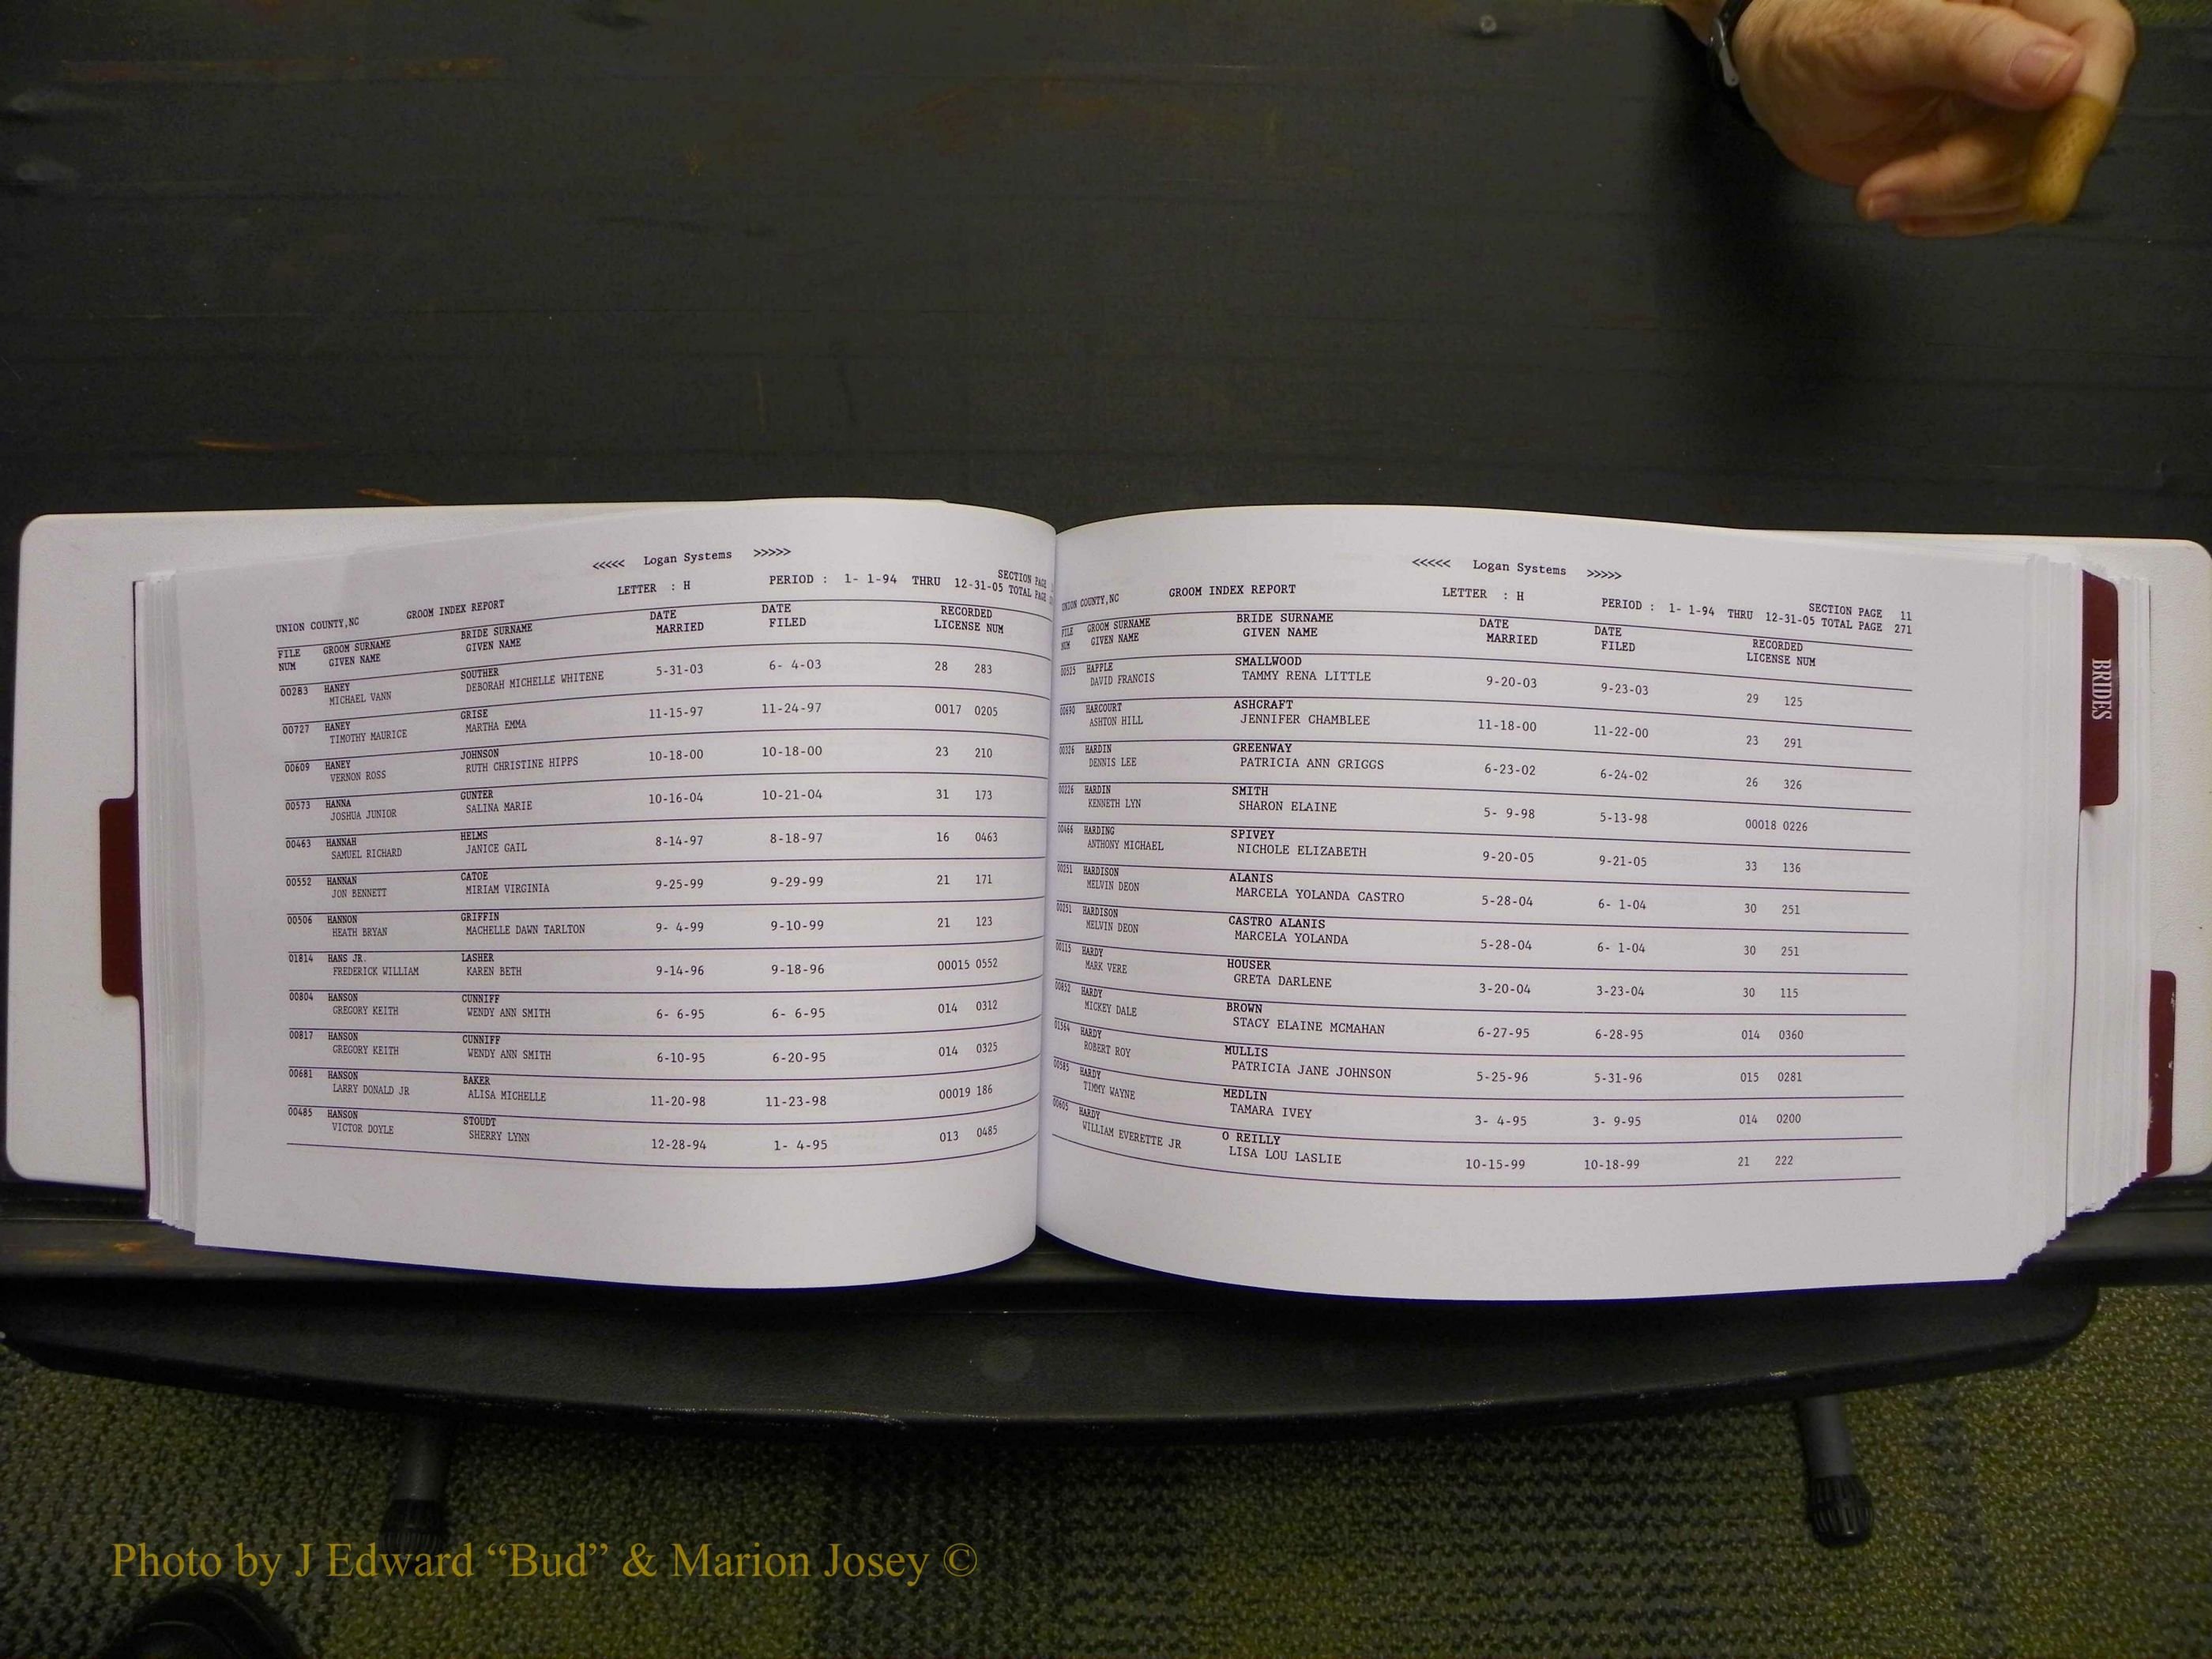 <<<<< Logan Systems >>>>>
UNION COUNTY,NC GROOM INDEX REPORT LETTER : H PERIOD : 1- 1-94 THRU 12-31-05 SECTION PAGE
TOTAL PAGE
FILE GROOM SURNAME BRIDE SURNAME DATE DATE RECORDED
NUM GIVEN NAME GIVEN NAME MARRIED FILED LICENSE NUM
00283 HANEY SOUTHER 5-31-03 6- 4-03 28 283
MICHAEL VANN DEBORAH MICHELLE WHITENE
00727 HANEY GRISE 11-15-97 11-24-97 0017 0205
TIMOTHY MAURICE MARTHA EMMA
00609 HANEY JOHNSON 10-18-00 10-18-00 23 210
VERNON ROSS RUTH CHRISTINE HIPPS
00573 HANNA GUNTER 10-16-04 10-21-04 31 173
JOSHUA JUNIOR SALINA MARIE
00463 HANNAH HELMS 8-14-97 8-18-97 16 0463
SAMUEL RICHARD JANICE GAIL
00552 HANNAN CATOE 9-25-99 9-29-99 21 171
JON BENNETT MIRIAM VIRGINIA
00506 HANNON GRIFFIN 9- 4-99 9-10-99 21 123
HEATH BRYAN MACHELLE DAWN TARLTON
01814 HANS JR. LASHER 9-14-96 9-18-96 00015 0552
FREDERICK WILLIAM KAREN BETH
00804 HANSON CUNNIFF 6- 6-95 6- 6-95 014 0312
GREGORY KEITH WENDY ANN SMITH
00817 HANSON CUNNIFF 6-10-95 6-20-95 014 0325
GREGORY KEITH WENDY ANN SMITH
00681 HANSON BAKER 11-20-98 11-23-98 00019 186
LARRY DONALD JR ALISA MICHELLE
00485 HANSON STOUDT 12-28-94 1- 4-95 013 0485
VICTOR DOYLE SHERRY LYNN
<<<<< Logan Systems >>>>>
UNION COUNTY,NC GROOM INDEX REPORT LETTER : H PERIOD : 1- 1-94 THRU 12-31-05 SECTION PAGE 11
TOTAL PAGE 271
FILE GROOM SURNAME BRIDE SURNAME DATE DATE RECORDED
NUM GIVEN NAME GIVEN NAME MARRIED FILED LICENSE NUM
00525 HAPPLE SMALLWOOD 9-20-03 9-23-03 29 125
DAVID FRANCIS TAMMY RENA LITTLE
00690 HARCOURT ASHCRAFT 11-18-00 11-22-00 23 291
ASHTON HILL JENNIFER CHAMBLEE
00326 HARDIN GREENWAY 6-23-02 6-24-02 26 326
DENNIS LEE PATRICIA ANN GRIGGS
00226 HARDIN SMITH 5- 9-98 5-13-98 00018 0226
KENNETH LYN SHARON ELAINE
00466 HARDING SPIVEY 9-20-05 9-21-05 33 136
ANTHONY MICHAEL NICHOLE ELIZABETH
00251 HARDISON ALANIS 5-28-04 6- 1-04 30 251
MELVIN DEON MARCELA YOLANDA CASTRO
00251 HARDISON CASTRO ALANIS 5-28-04 6- 1-04 30 251
MELVIN DEON MARCELA YOLANDA
00115 HARDY HOUSER 3-20-04 3-23-04 30 115
MARK VERE GRETA DARLENE
00852 HARDY BROWN 6-27-95 6-28-95 014 0360
MICKEY DALE STACY ELAINE MCMAHAN
01564 HARDY MULLIS 5-25-96 5-31-96 015 0281
ROBERT ROY PATRICIA JANE JOHNSON
00585 HARDY MEDLIN 3- 4-95 3- 9-95 014 0200
TIMMY WAYNE TAMARA IVEY
00605 HARDY O REILLY 10-15-99 10-18-99 21 222
WILLIAM EVERETTE JR LISA LOU LASLIE
BRIDES
Photo by J Edward “Bud” & Marion Josey ©